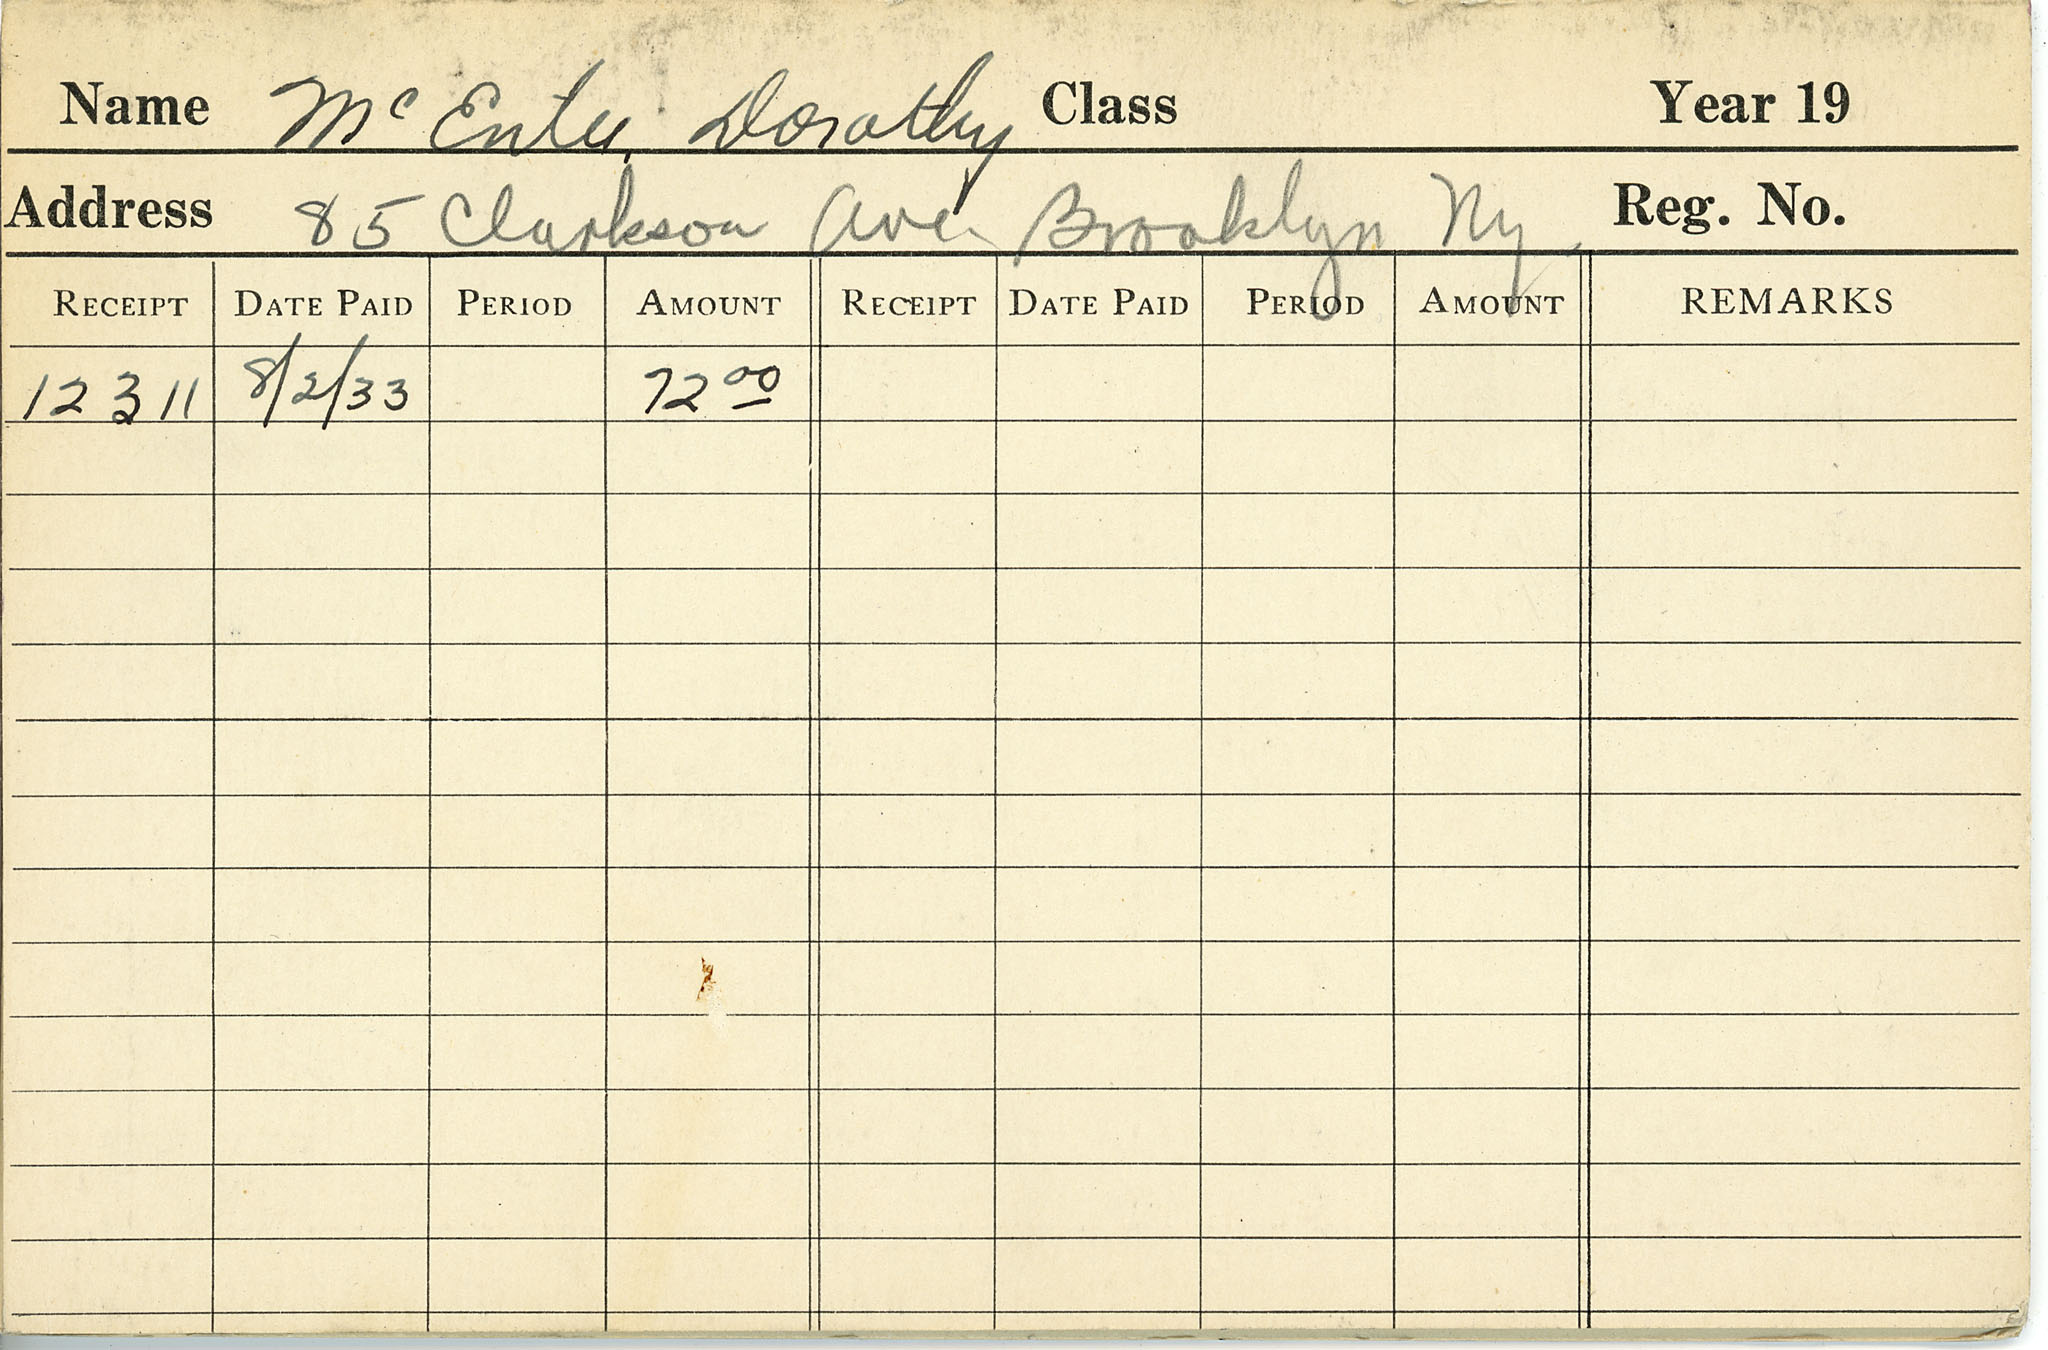 Name McEntee, Dorothy Class Year 19
Address 85 Clarkson Ave. Brooklyn Ny. Reg. No.
RECEIPT DATE PAID PERIOD AMOUNT RECEIPT DATE PAID PERIOD AMOUNT REMARKS
12311 8/2/33 72 00